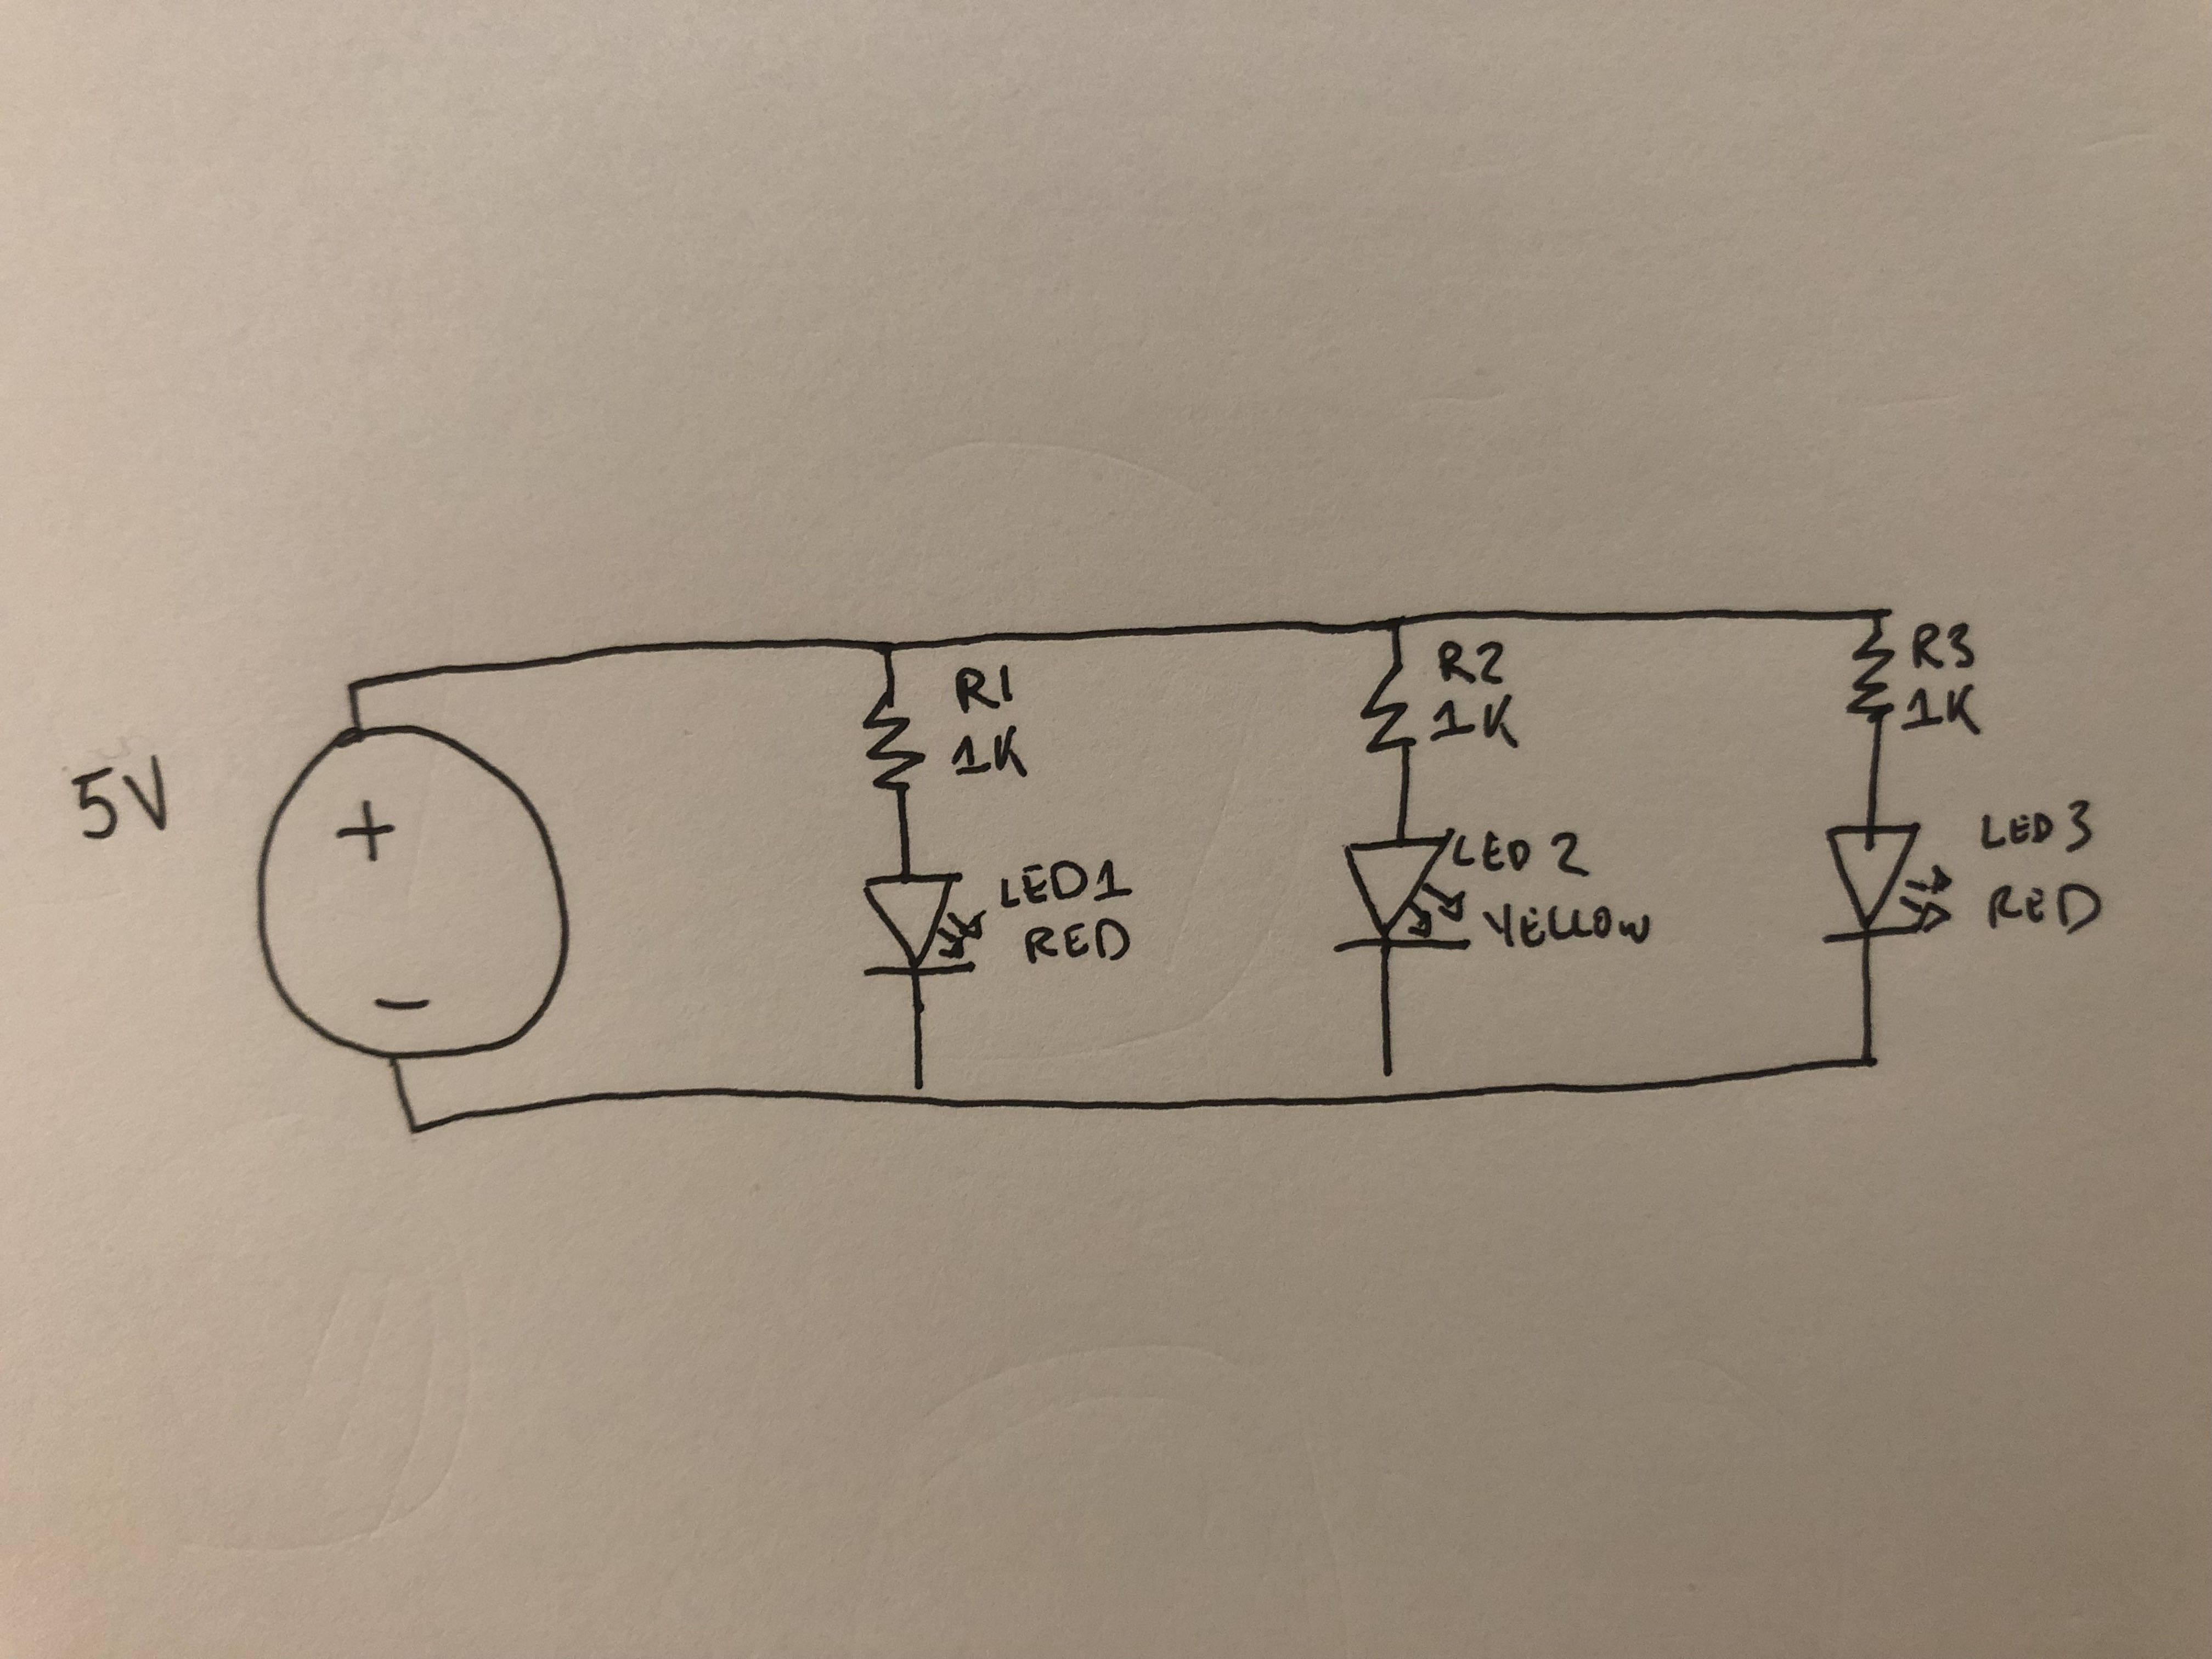 5V
+
-
R1
1K
LED1
RED
R2
1K
LED2
YELLOW
R3
1K
LED3
RED